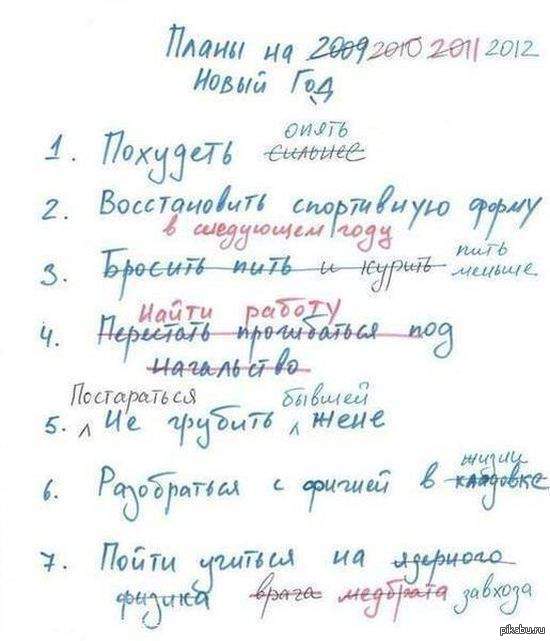 Планы на 2009 2010 2011 2012
Новый Год
опять
1. Похудеть сильнее
2. Восстановить спортивную форму
в следующем году
пить
3. Бросить пить и курить меньше
Найти работу
4. Перестать прогибаться под
начальство
Постараться бывшей
5. Не грубить жене
жизни
6. Разобраться с фигнёй в кладовке
7. Пойти учиться на ядерного
физика врача медбрата завхоза
pikabu.ru